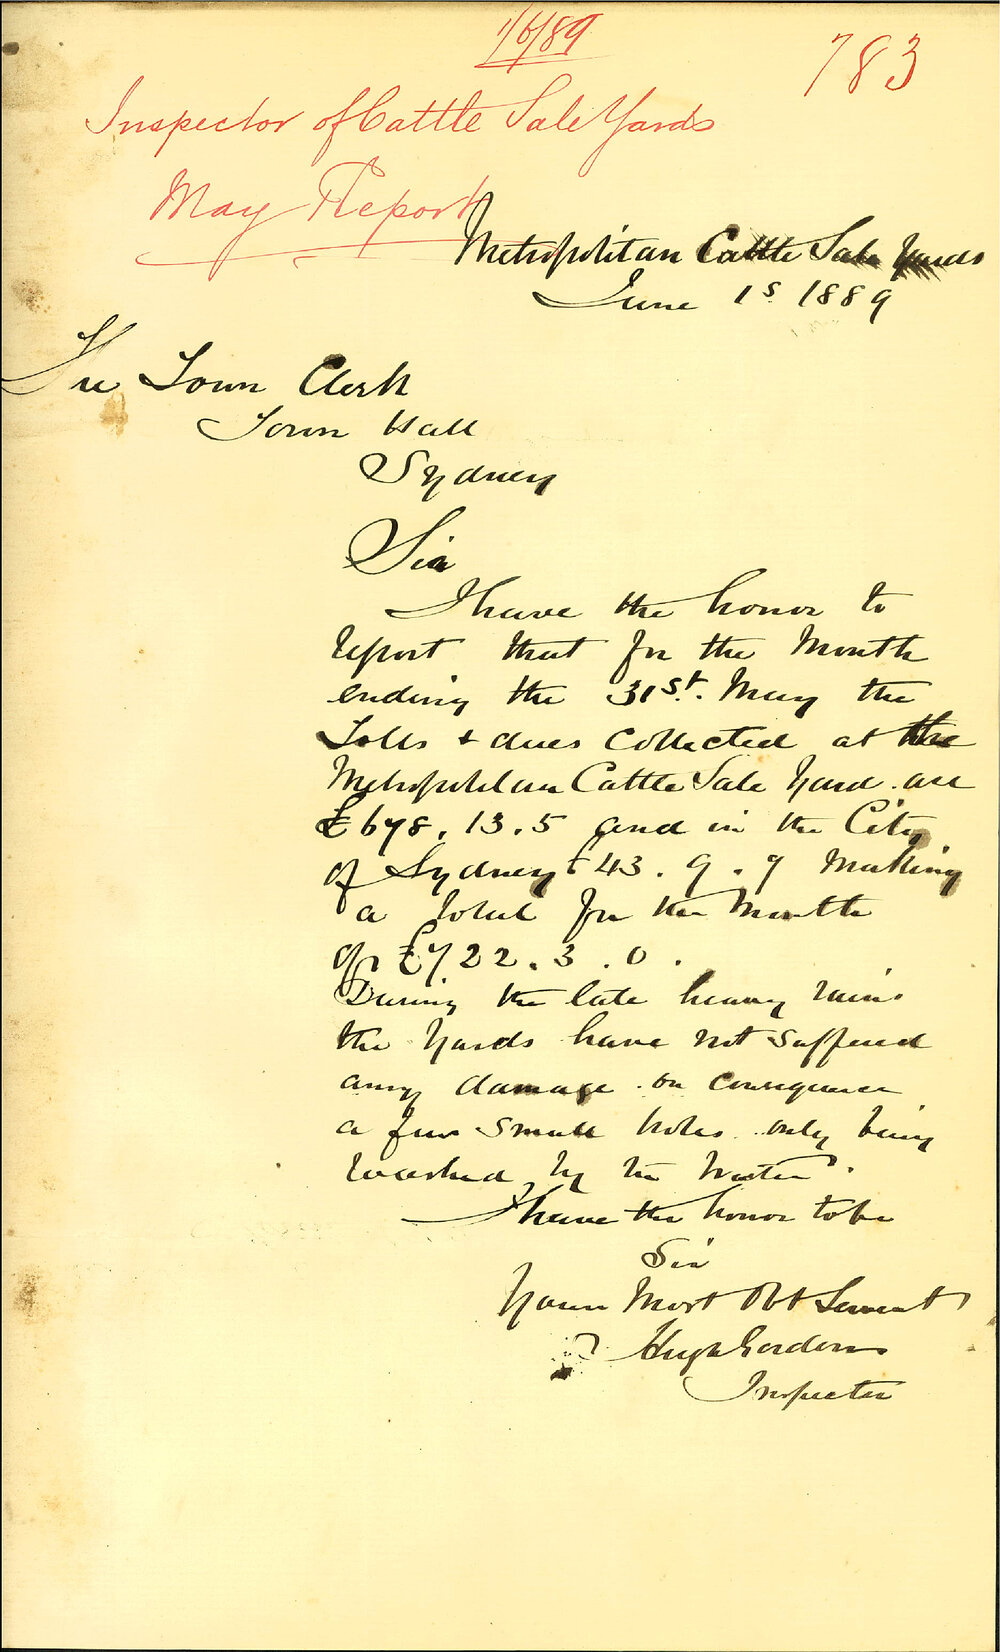 1/6/89
783
Inspector of Cattle Sale Yards
May Report
Metropolitan Cattle Sale Yards
June 1s 1889
The Town Clerk
Town Hall
Sydney
Sir
I have the honor to
report that for the Month
ending the 31st. May the
Tolls & dues Collected at the
Metropolitan Cattle Sale Yard are
£678.13.5 and in the City
of Sydney £43.9.7 Making
a total for the Month
of £722.3.0.
During the late heavy rains
the Yards have not suffered
any damage on consequence
a few small holes only being
washed by the Water.
I have the honor to be
Sir
Your Most Obt Servant
Hugh Gordon
Inspector